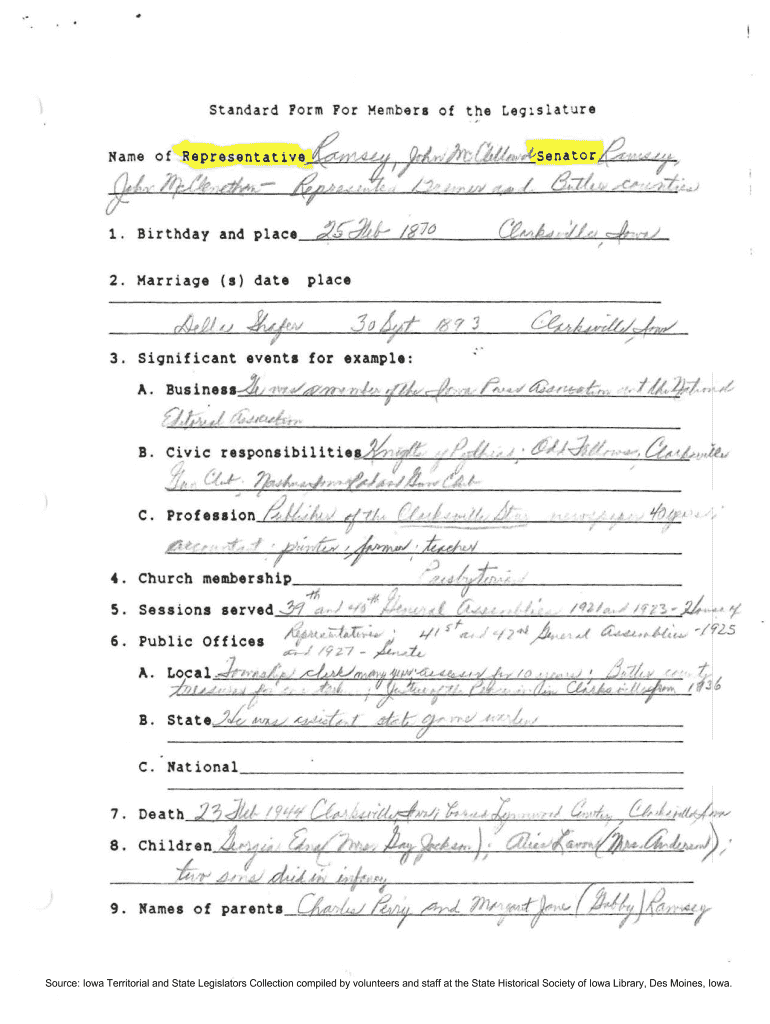 Standard Form For Members of the Legislature
Name of Representative Ramsey, John McClellond Senator Ramsey,
John - Represented Bremer and Butler counties
1. Birthday and place 25 Feb 1870 Clarksville, Iowa
2. Marriage (s) date place
Della Shafer 30 Sept 1893 Clarksville, Iowa
3. Significant events for example:
A. Business He was a member of the Iowa Press Association and the National
Editorial Association
B. Civic responsibilities Knights of Pythias; Odd Fellows, Clarksville
Gun Club; Gun Club
C. Profession Publisher of the Clarksville Star newspaper 40 years;
accountant; printer; farmer; teacher
4. Church membership Presbyterian
5. Sessions served 39th and 40th General Assemblies 1921 and 1923 - House of
Representatives; 41st and 42nd General Assemblies - 1925
and 1927 - Senate
6. Public Offices
A. Local Township clerk many years; assessor for 10 years; Butler county
treasurer for one term; Justice of the Peace in Clarksville from 1936
B. State He was assistant state game warden
C. National
7. Death 23 Feb 1944 Clarksville, Iowa; buried Lynwood Cemetery, Clarksville, Iowa
8. Children Georgia Edna (Mrs. Guy Jackson); Alice Lavon (Mrs. Anderson);
two sons died in infancy
9. Names of parents Charles Perry and Margaret Jane (Gabby) Ramsey
Source: Iowa Territorial and State Legislators Collection compiled by volunteers and staff at the State Historical Society of Iowa Library, Des Moines, Iowa.